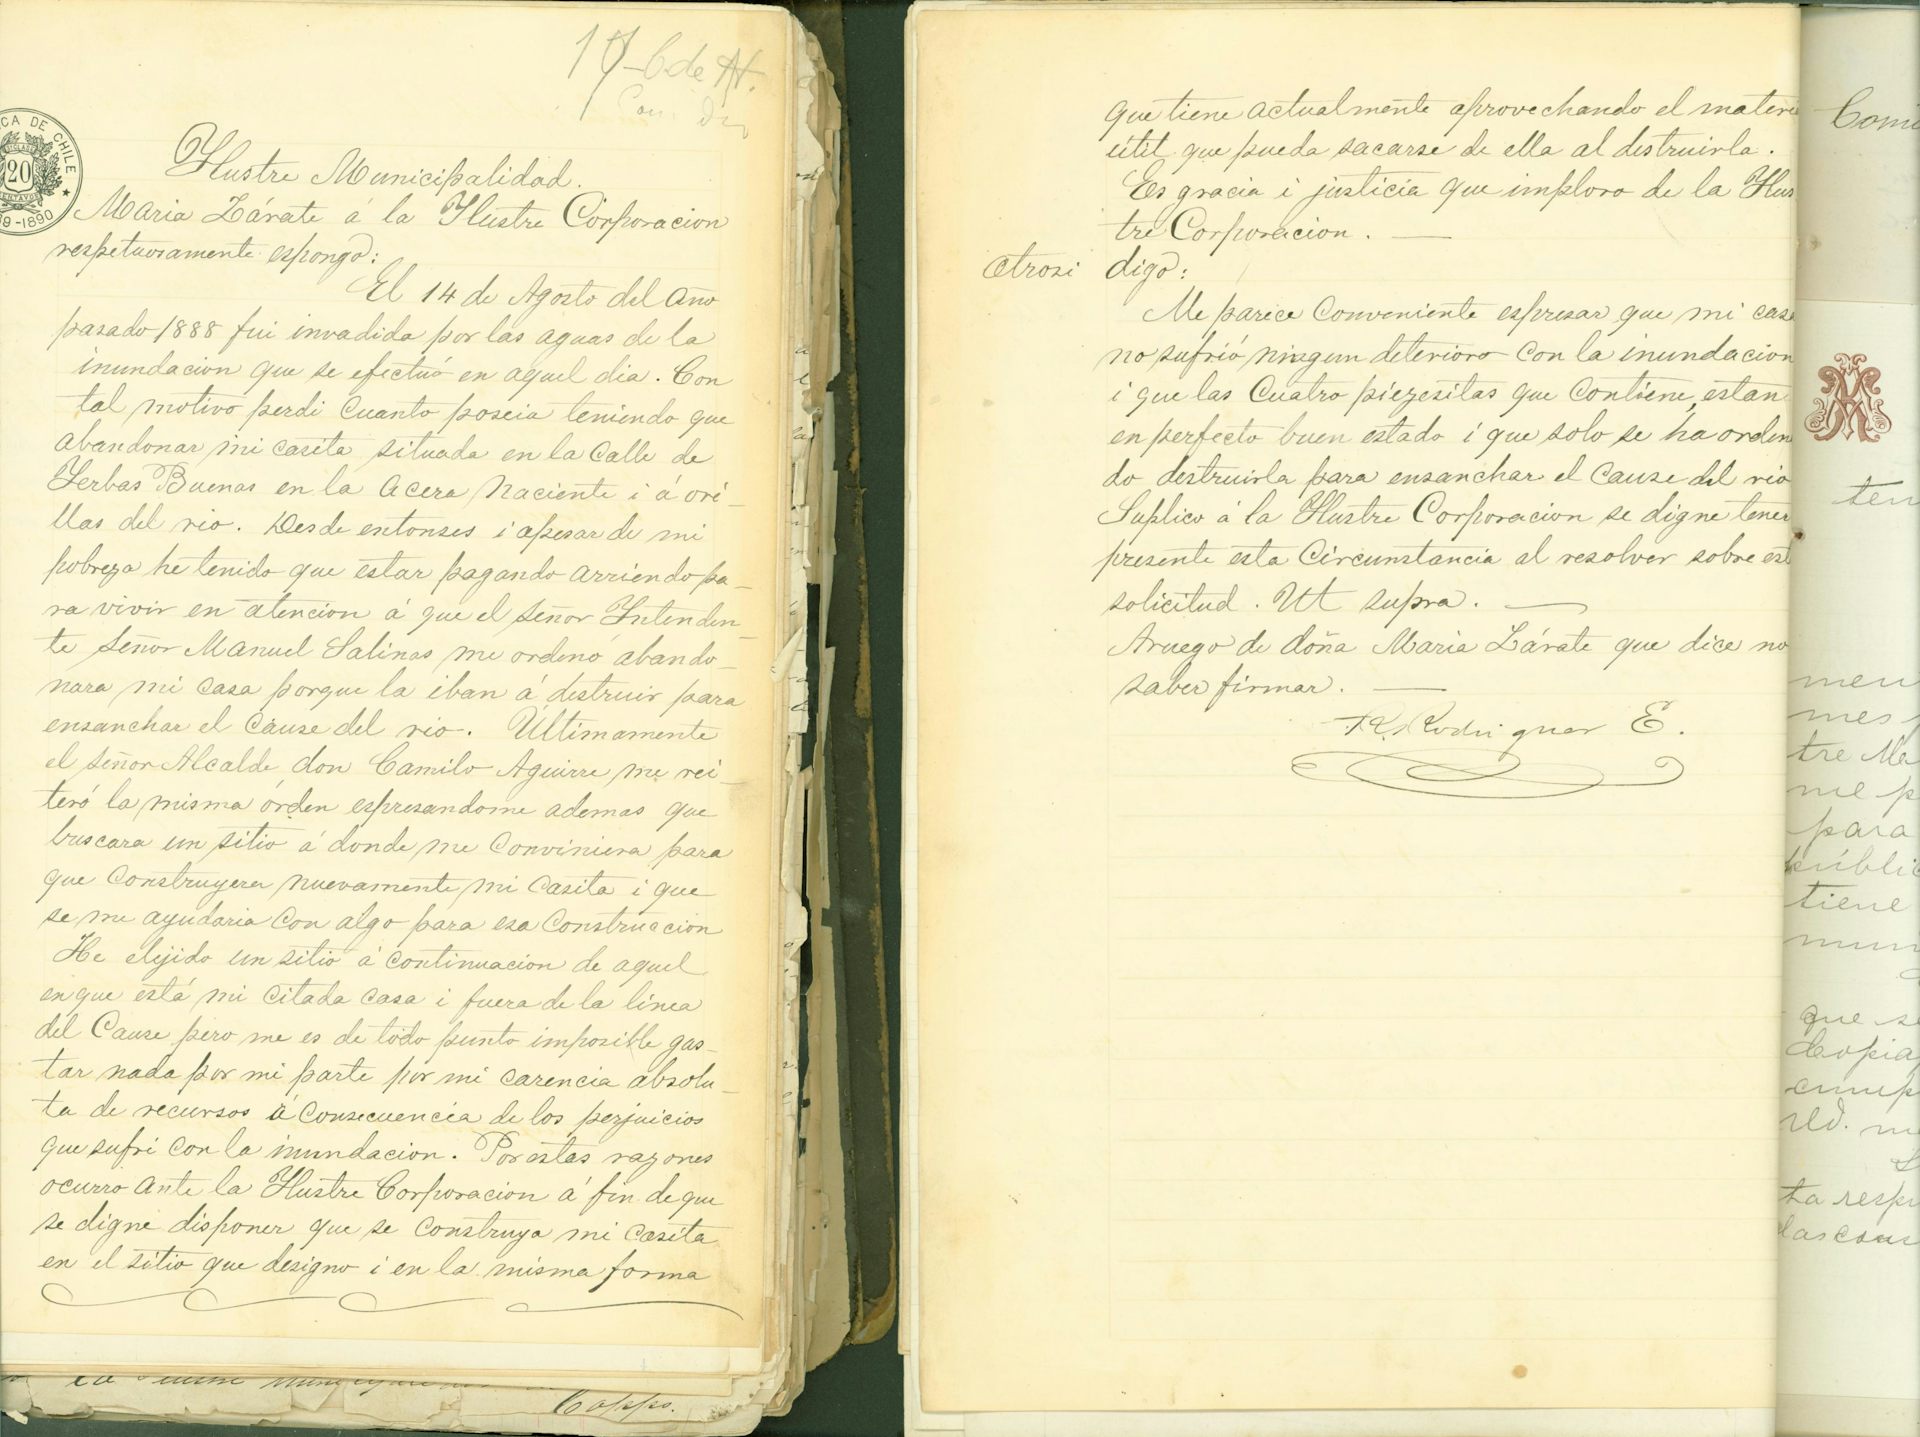 17-6 de A.
CA DE CHILE
20
CENTAVOS
9-1890
Ilustre Municipalidad.
Maria Zárate á la Ilustre Corporacion
respetuosamente espongo:
El 14 de Agosto del año
pasado 1888 fui invadida por las aguas de la
inundacion que se efectuó en aquel dia. Con
tal motivo perdi cuanto poseia teniendo que
abandonar mi casita situada en la calle de
Yerbas Buenas en la acera naciente i á ori-
llas del rio. Desde entonses i apesar de mi
pobreza he tenido que estar pagando arriendo pa-
ra vivir en atencion á que el señor Intenden-
te señor Manuel Salinas me ordenó abando-
nara mi casa porque la iban á destruir para
ensanchar el cause del rio. Últimamente
el señor Alcalde don Camilo Aguirre me rei-
teró la misma órden espresandome ademas que
buscara un sitio á donde me conviniera para
que construyera nuevamente mi casita i que
se me ayudaria con algo para esa construccion
He elijido un sitio á continuacion de aquel
en que está mi citada casa i fuera de la linea
del cause pero me es de todo punto imposible gas-
tar nada por mi parte por mi carencia absolu-
ta de recursos á consecuencia de los perjuicios
que sufri con la inundacion. Por estas razones
ocurro ante la Ilustre Corporacion á fin de que
se digne disponer que se construya mi casita
en el sitio que designo i en la misma forma
que tiene actualmente aprovechando el materi
útil que pueda sacarse de ella al destruirla.
Es gracia i justicia que imploro de la Ilus
tre Corporacion.
Otrosi digo:
Me parece conveniente espresar que mi casa
no sufrió ningun deterioro con la inundacion
i que las cuatro piezesitas que contiene, estan
en perfecto buen estado i que solo se ha orden
do destruirla para ensanchar el cause del rio
Suplico á la Ilustre Corporacion se digne tener
presente esta circunstancia al resolver sobre est
solicitud. Ut supra.
Aruego de doña Maria Zárate que dice no
saber firmar.
R. Rodriguez E.
Comi
ten
men
mes
tre Me
me p
para
públic
tiene
mun
que se
Copia
cump
Ud. me
ta respe
las cons